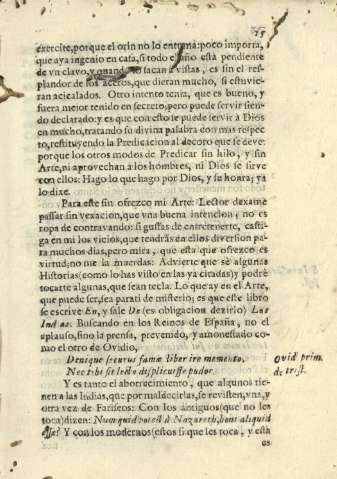 75
exercite, porque el orin no lo entuma: poco importa,
que aya ingenio en casa, si todo el año està pendiente
de vn clavo, y quando lo sacan a vistas, es sin el res-
plandor de los aceros, que dieran mucho, si estuvie-
ran acicalados. Otro intento tenia, que es bueno, y
fuera mejor tenido en secreto, pero puede servir siendo
declarado: y es que con esto se puede servir à Dios
en mucho, tratando su divina palabra con mas respec
to, restituyendo la Predicacion al decoro que se deve:
porque los otros modos de Predicar sin hilo, y sin
Arte, ni aprovechan à los hombres, ni Dios se sirve
con ellos: Hago lo que hago por Dios, y su honra; ya
lo dixe.
Para este fin ofrezco mi Arte: Lector dexame
passar sin vexacion, que vna buena intencion, no es
ropa de contravando: si gustas de entretenerte, casti-
ga en mi los vicios, que tendràs en ellos diversion pa-
ra muchos dias, pero mira, que esta que ofrezco es
virtud; no me la muerdas: Advierte que sè algunas
Historias (como lo has visto en las ya citadas) y podrè
tocarte alguna, que sean tecla. Lo que ay en el Arte,
que puede ser, sea para ti de misterio; es que este libro
se escrive En, y sale De (es obligacion dezirlo) Las
Indias. Buscando en los Reinos de España, no el
aplauso, sino la prensa, prevenido, y amonestado co-
mo el otro de Ovidio,
Denique securus famæ liber ire memento,
Nec tibi sit lecto displicuisse pudor.
Ovid prim.
de trist.
Y es tanto el aborrecimiento, que algunos tie-
nen a las Indias, que por maldecirlas, se revisten, vna, y
otra vez de Fariseos: Con los antiguos (que no les
toca) dizen: Nunquid potest à Nazareth, boni aliquid
esse? Y con los modernos (estos si que les toca, y està
es